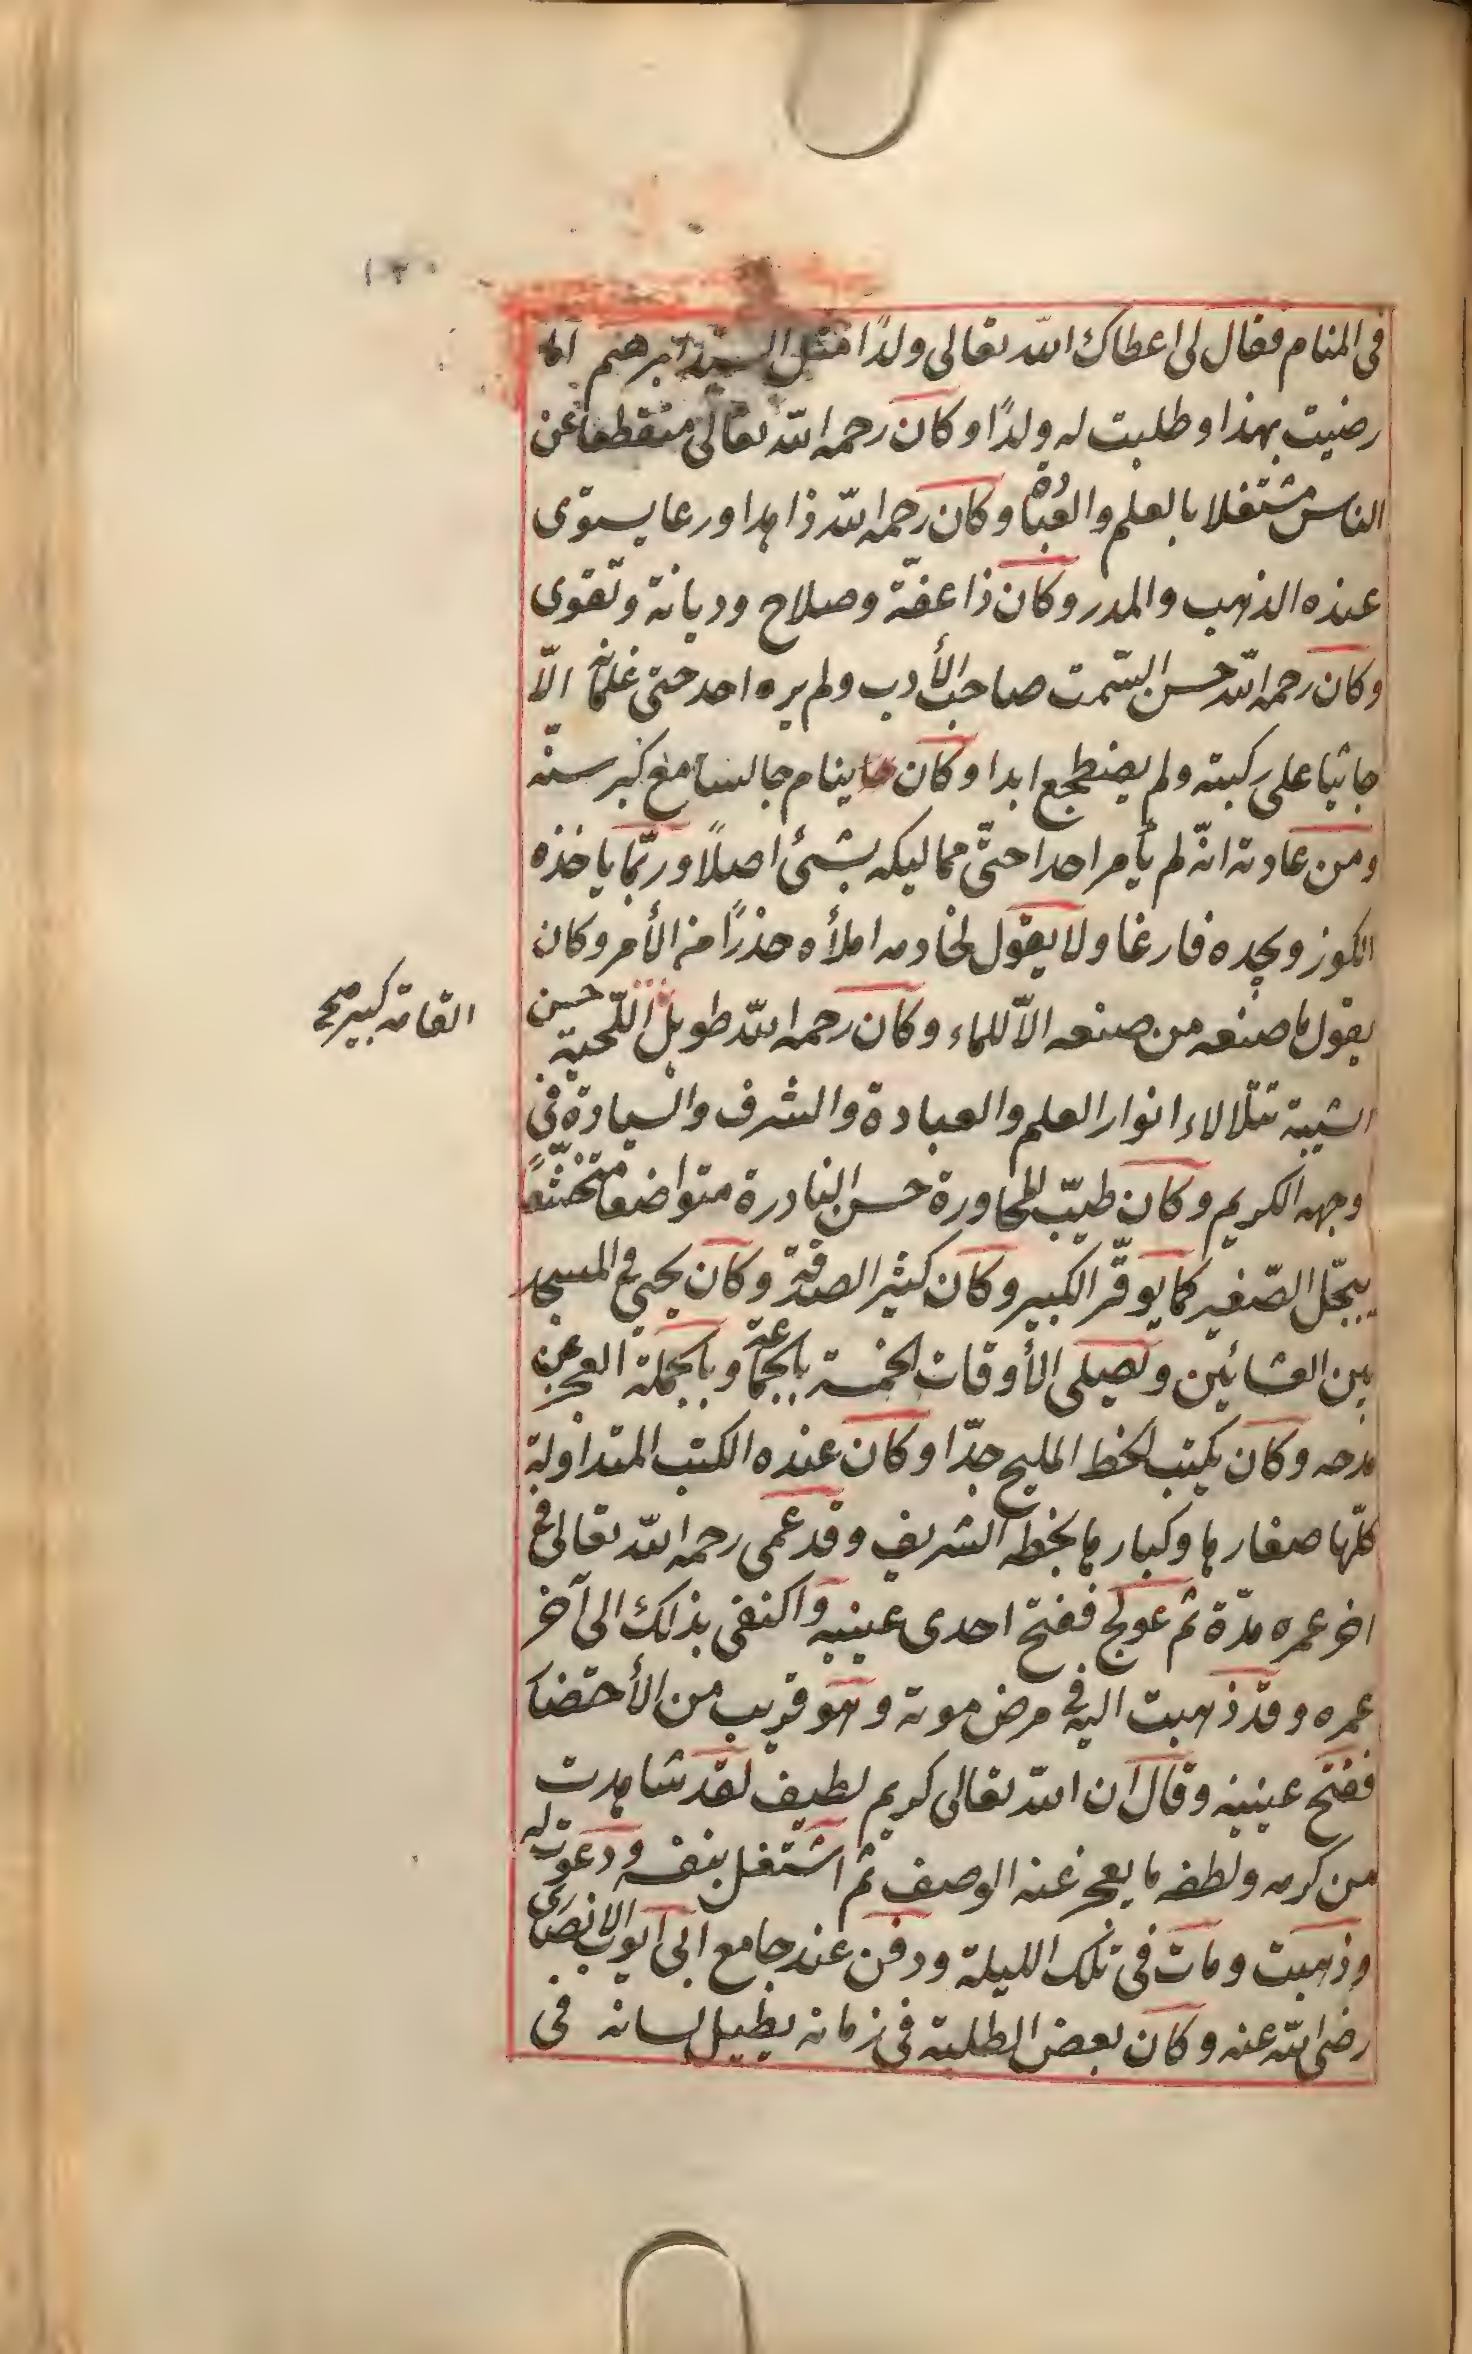 في المنام فقال لى اعطاك الله تعالى ولدًا مثل السيد ابرهيم اما
رضيت بهذا وطلبت له ولدًا وكان رحمه الله تعالى منقطعا عن
الناس مشتغلا بالعلم والعبادة وكان رحمه الله زاهدا ورعا يستوى
عنده الذهب والمدر وكان ذا عفّة وصلاح وديانة وتقوى
وكان رحمه الله حسن السّمت صاحب الأدب ولم يره احد حتى غلمانه الّا
جاثيا على ركبته ولم يضطجع ابدا وكان ينام جالسا مع كبر سنّه
ومن عادته انّه لم يأمر احدا حتّى مماليكه بشئ اصلًا وربّما ياخذه
الكوز ويجده فارغا ولا يقول لخادمه املأه حذرًا من الأمر وكان
يقول ما صنعه من صنعه الّا للماء وكان رحمه الله طويل اللّحية حسن
القامة كبير صح
الشيبة تتلالاء انوار العلم والعبادة والشرف والسيادة في
وجهه الكريم وكان طيّب المحاورة حسن النادرة متواضعا متخشّعًا
يبجّل الصّغير كما يوقّر الكبير وكان كثير الصدقة وكان يحيى في المسجد
بين العشائين ويصلى الأوقات الخمسة بالجماعة وبالجملة العجز عن
مدحه وكان يكتب الخط المليح جدّا وكان عنده الكتب المتداولة
كلّها صغارها وكبارها بخطه الشريف وقد عمى رحمه الله تعالى في
اخر عمره مدّة ثم عولج ففتح احدى عينيه واكتفى بذلك الى آخر
عمره وقد ذهبت اليه في مرض موته وهو قريب من الأحتضا
ففتح عينيه وقال ان الله تعالى كريم لطيف لقد شاهدت
من كرمه ولطفه ما يعجز عنه الوصف ثم اشتغل بنفسه ودعوت له
وذهبت ومات في تلك الليلة ودفن عند جامع ابى ايوب الانصارى
رضى الله عنه وكان بعض الطلبة في زمانه يطيل لسانه في